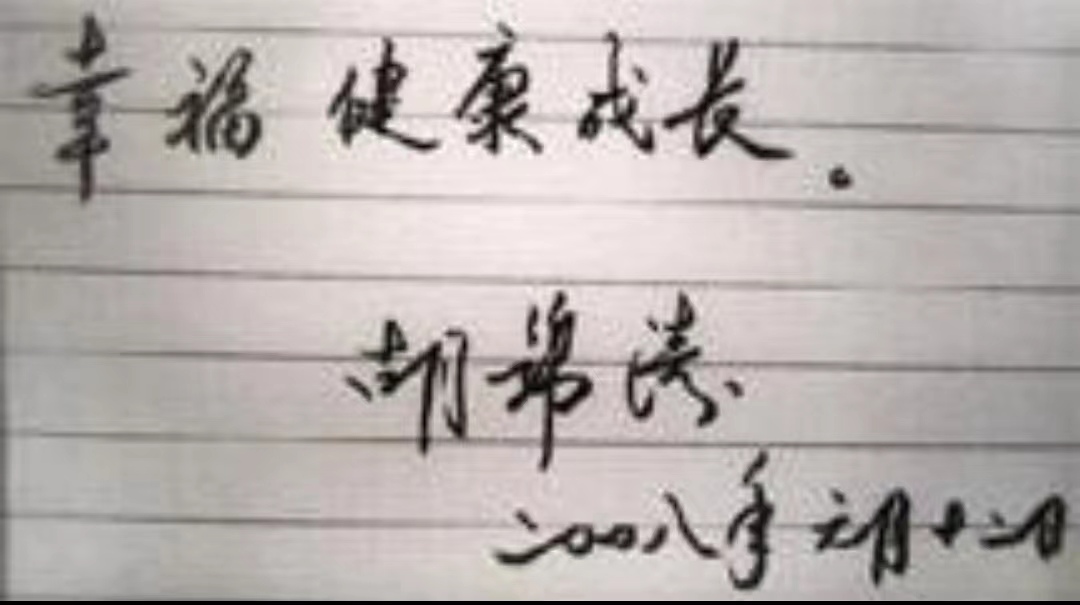 幸福健康成长。
胡锦涛
二00八年元月十二日